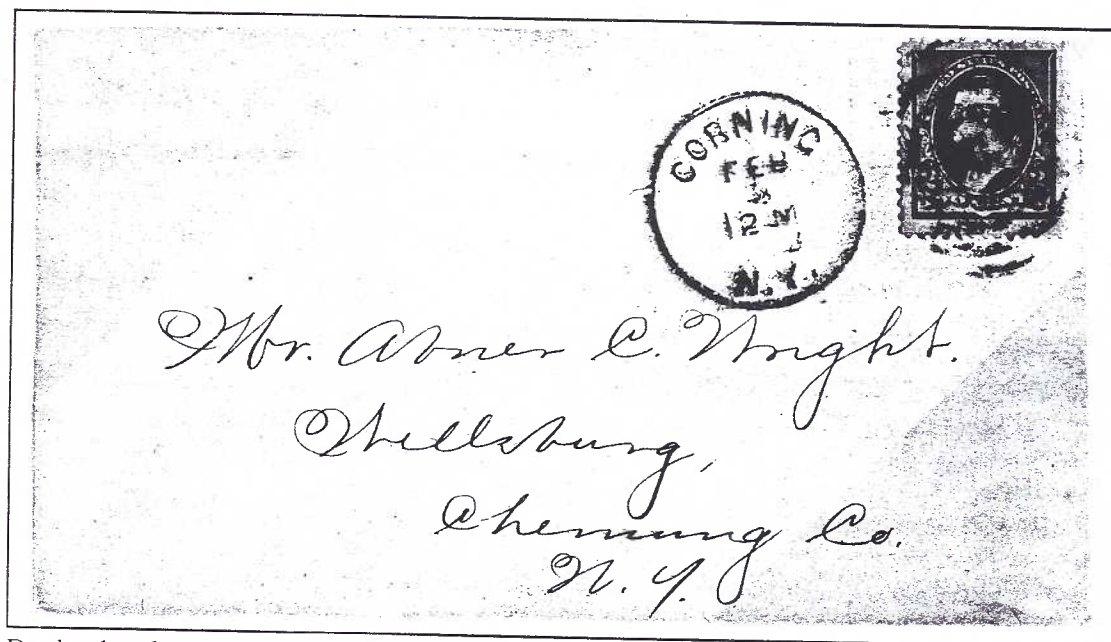 CORNING
FEB
12 M
N.Y.
Mr. Abner C. Wright.
Wellsburg,
Chemung Co.
N. Y.